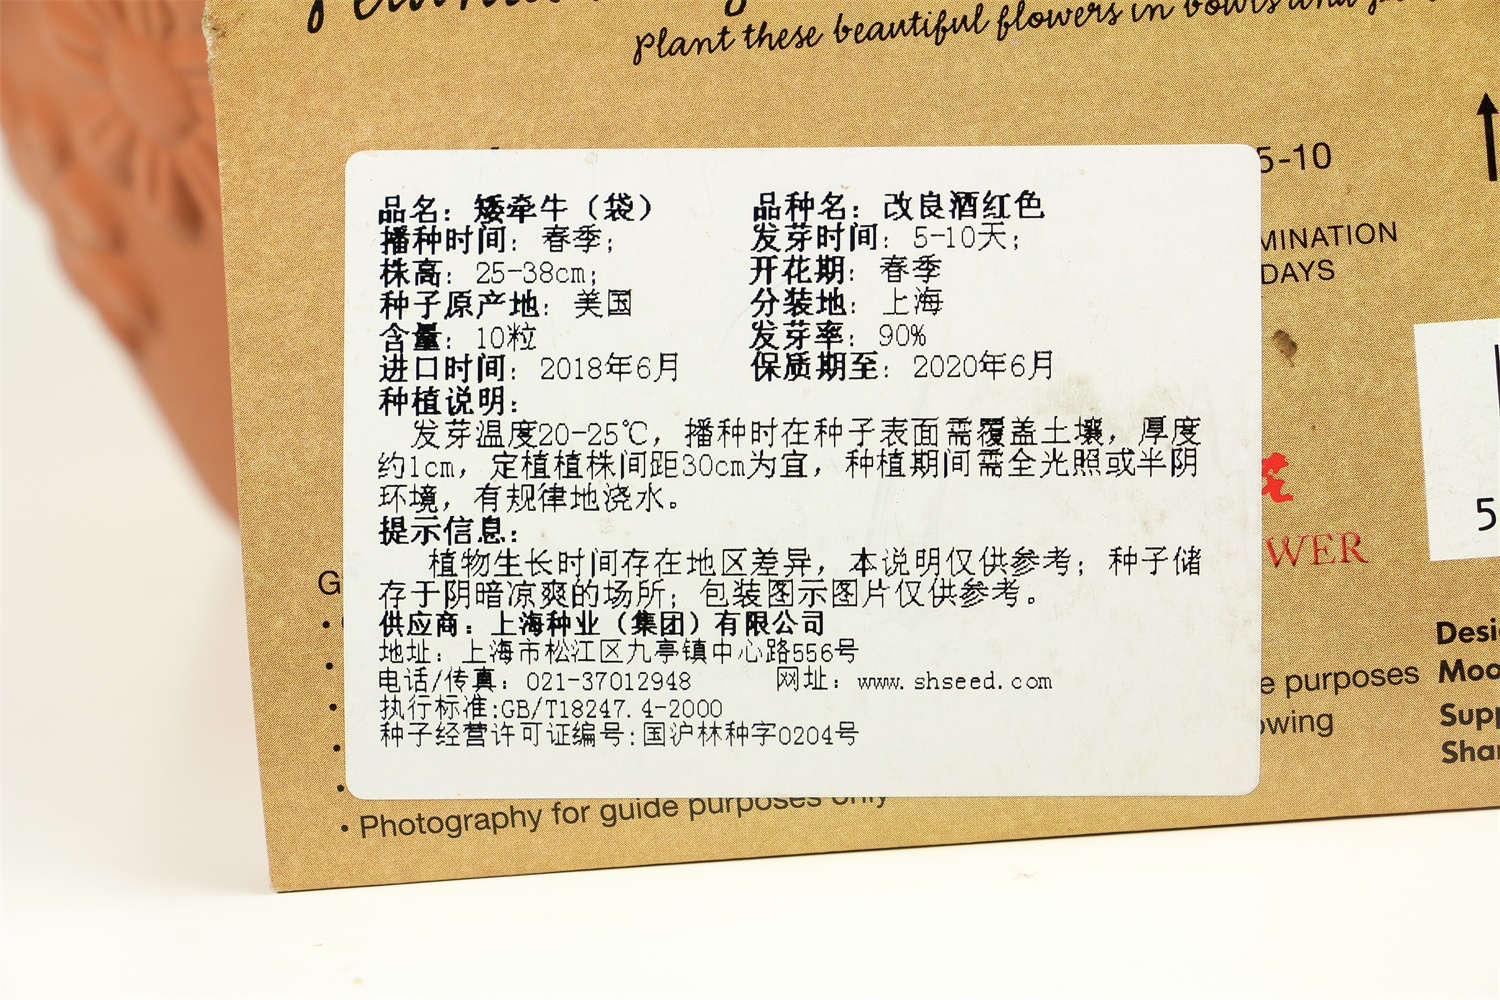 Plant these beautiful flowers in bowls and
5-10
MINATION
DAYS
品名：矮牵牛（袋） 品种名：改良酒红色
播种时间：春季； 发芽时间：5-10天；
株高：25-38cm； 开花期：春季
种子原产地：美国 分装地：上海
含量：10粒 发芽率：90%
进口时间：2018年6月 保质期至：2020年6月
种植说明：
发芽温度20-25℃，播种时在种子表面需覆盖土壤，厚度
约1cm，定植植株间距30cm为宜，种植期间需全光照或半阴
环境，有规律地浇水。
提示信息：
植物生长时间存在地区差异，本说明仅供参考；种子储
存于阴暗凉爽的场所；包装图示图片仅供参考。
供应商：上海种业（集团）有限公司
地址：上海市松江区九亭镇中心路556号
电话/传真：021-37012948 网址：www.shseed.com
执行标准:GB/T18247.4-2000
种子经营许可证编号:国沪林种字0204号
WER
5
G
Desi
Moo
Supp
Shar
e purposes
owing
• Photography for guide purposes only